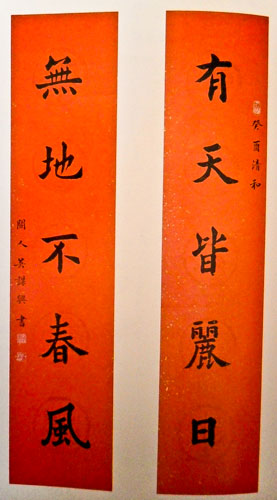 有天皆麗日
癸酉清和
無地不春風
人吳書